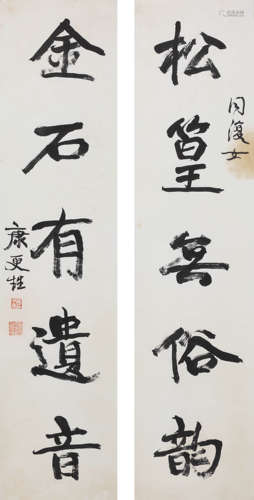 松篁無俗韵
同復女
金石有遺音
康更甡